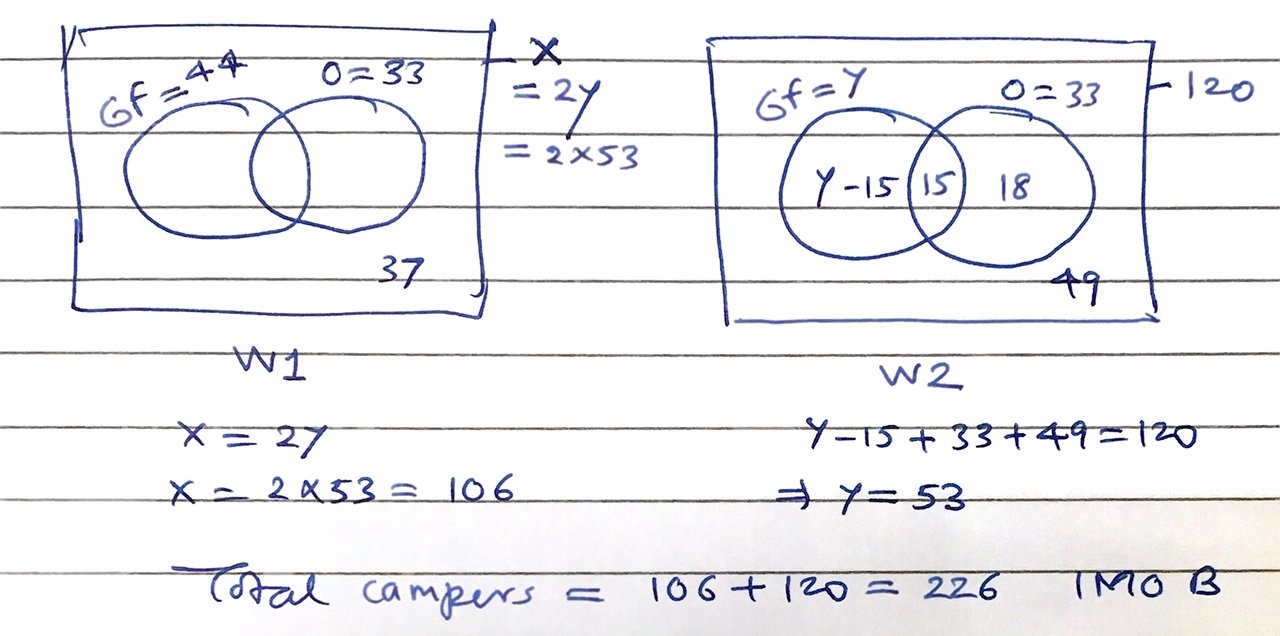 Gf = 44
O = 33
X
= 2y
= 2×53
37
W1
Gf = Y
O = 33
120
Y-15
15
18
49
W2
X = 2Y
X = 2×53 = 106
Y-15+33+49=120
⇒ Y = 53
Total campers = 106+120 = 226 IMO B